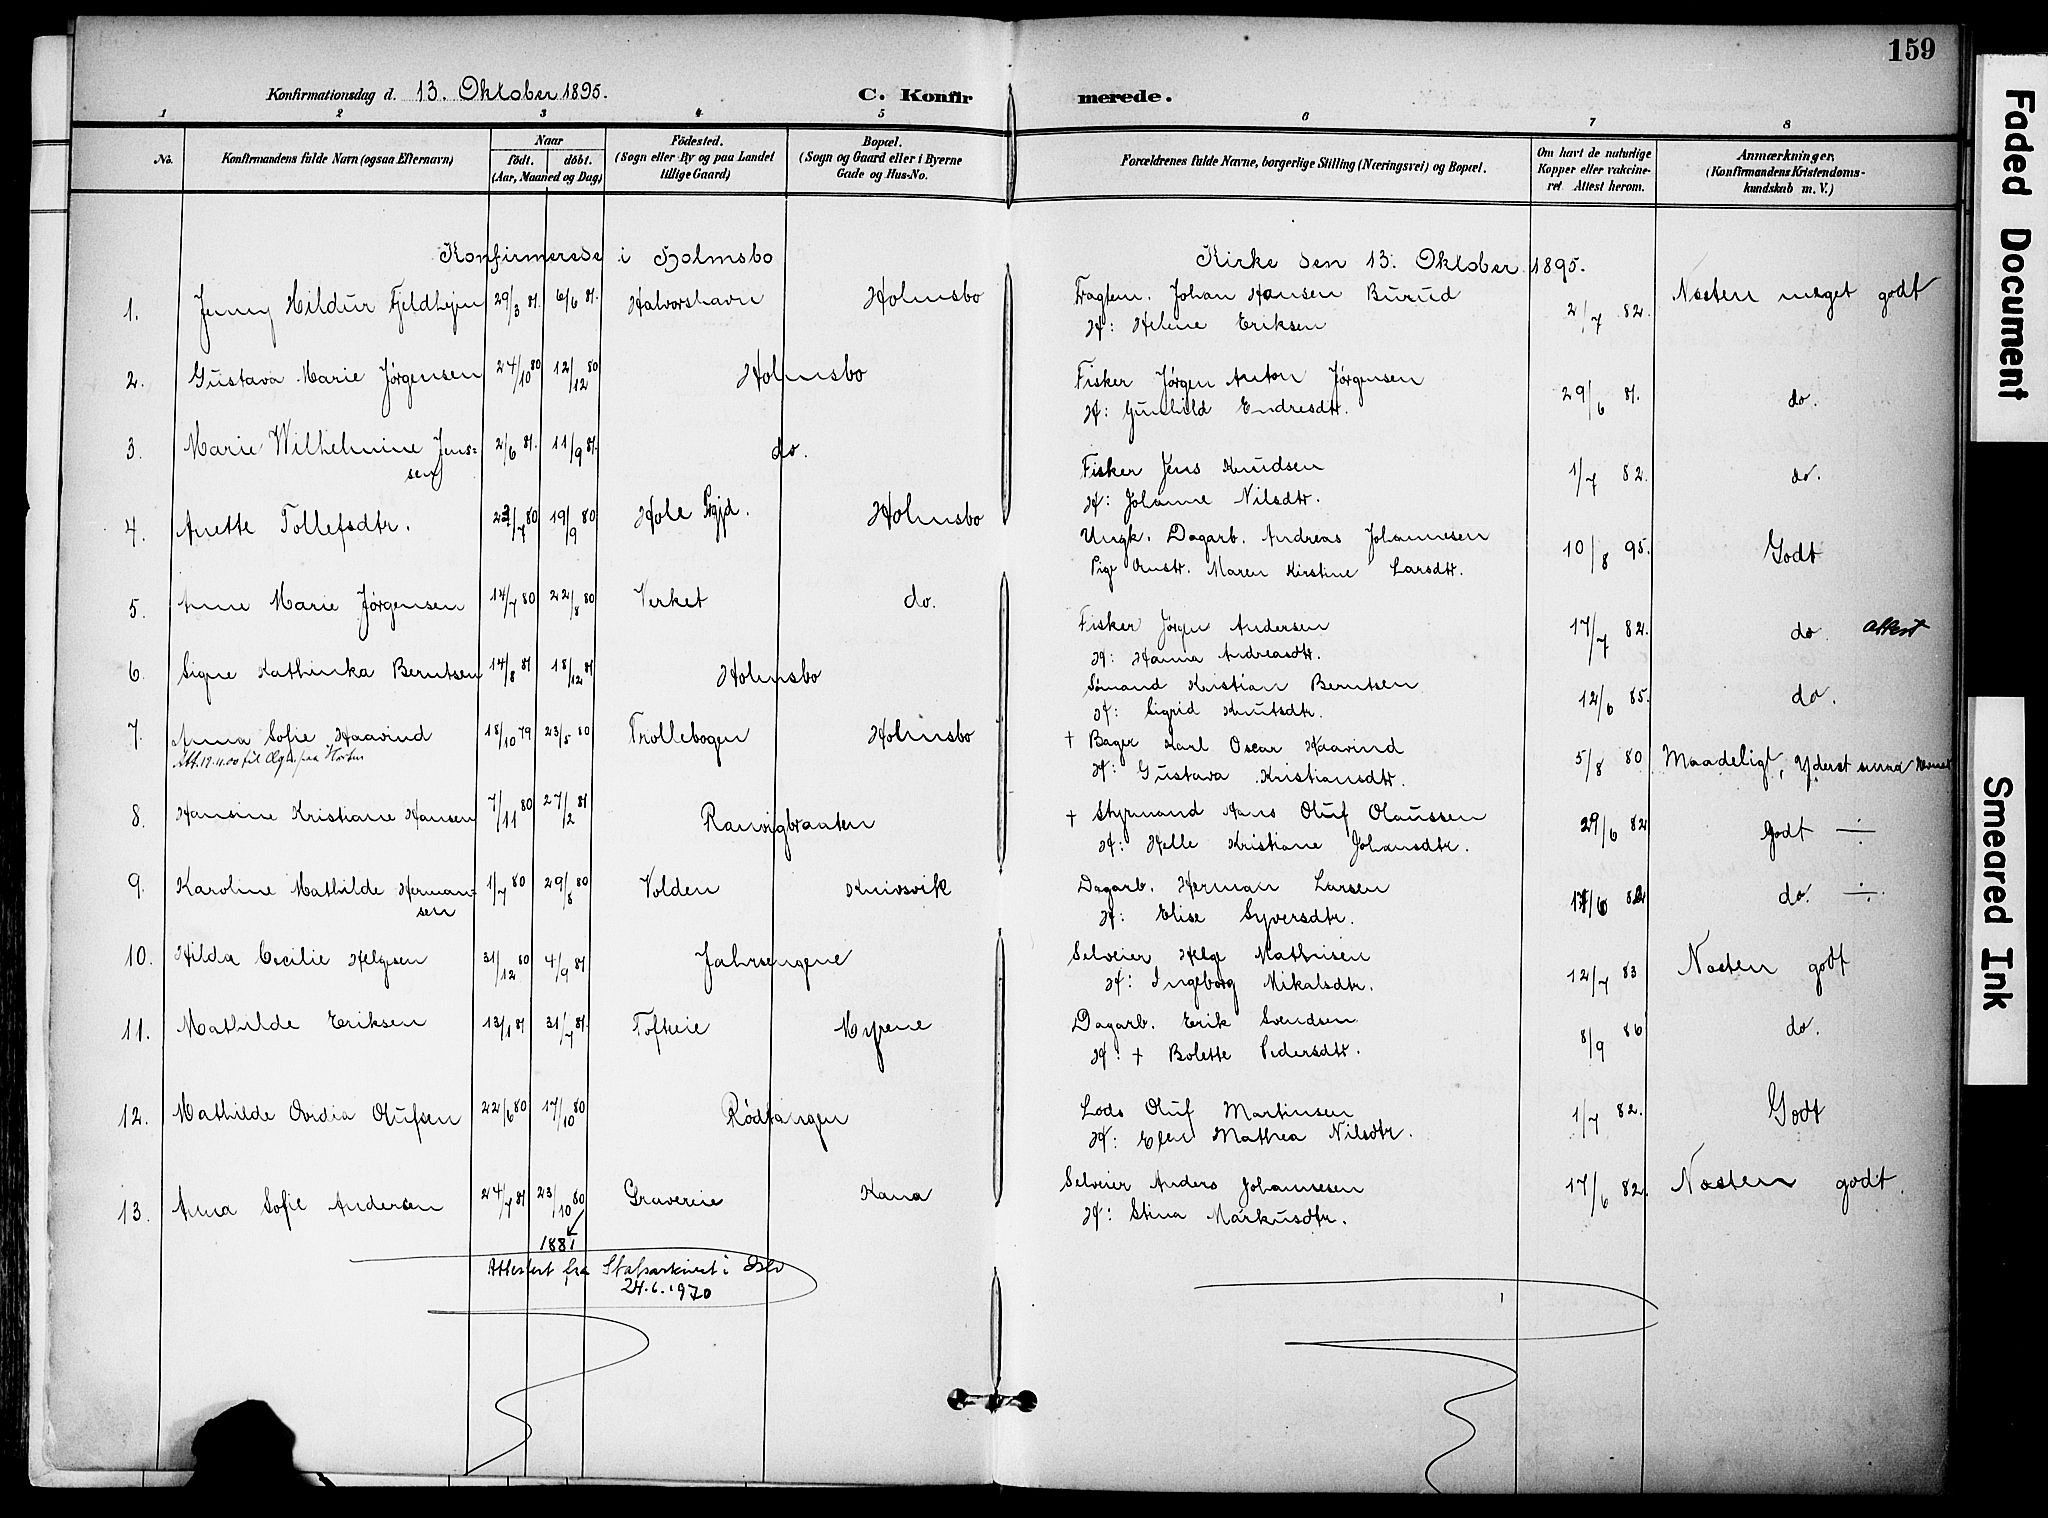 159
Konfirmationsdag d. 13. Oktober 1895. C. Konfir merede.
1 2 3 4 5 6 7 8
No. Konfirmandens fulde Navn (ogsaa Efternavn) Naar født. døbt. (Aar, Maaned og Dag) Fødested. (Sogn eller By og paa Landet tillige Gaard) Bopæl. (Sogn og Gaard eller i Byerne Gade og Hus-No. Forældrenes fulde Navne, borgerlige Stilling (Næringsvei) og Bopæl. Om havt de naturlige Kopper eller vakcineret. Attest herom. Anmærkninger. (Konfirmandens Kristendomskundskab m. V.)
Konfirmerede i Holmsbo Kirke den 13. Oktober 1895.
1. Jenny Hildur Fjeldhejm 29/3 81. 6/6 81. Halvorshavn Holmsbo Fragtem. Johan Hansen Burud 2/7 82. Næsten meget godt
H: Helene Eriksen
2. Gustava Marie Jørgensen 24/10 80 12/12 80 Holmsbo Fisker Jørgen Anton Jørgensen 29/6 81. do.
H: Gunhild Endresdtr.
3. Marie Wilhelmine Jens- 2/6 81. 11/9 81. do. Fisker Jens Knudsen 1/7 82. do.
sen H: Johanne Nilsdtr.
4. Anette Tollefsdtr. 23/7 80 19/9 80 Hole Prgjd. Holmsbo Ungk. Dagarb. Andreas Johannesen 10/8 95. Godt
Pige Maren Kirstine Larsdtr.
5. Anne Marie Jørgensen 14/7 80 22/8 80 Verket do. Fisker Jørgen Andersen 17/7 82. do. attest
H: Hanna Andreasdtr.
6. Signe Kathinka Berntsen 14/8 81 18/12 81 Holmsbo Sømand Kristian Berntsen 12/6 85. do.
H: Sigrid Knutsdtr.
7. Anna Sofie Haavind 18/10 79 23/5 80 Trollebogen Holmsbo † Bager Karl Oscar Haavind 5/8 80 Maadeligt, Yderst svag
Att. 12.4.00 til paa Horten H: Gustava Kristiansdtr.
8. Hansine Kristiane Hansen 7/11 80 27/2 81 Ranvigbraaten † Styrmand Hans Oluf Olaussen 29/6 82 Godt ÷
H: Helle Kristiane Johansdtr.
9. Karoline Mathilde Herman- 1/7 80 29/8 80 Volden Knivsvik Dagarb. Herman Larsen 17/6 82 do. ÷.
sen H: Elise Syversdtr.
10. Hilda Cecilie Helgesen 31/12 80 4/9 81 Jahrsengene Selveier Helge Mathisen 12/7 83 Næsten godt
H: Ingeborg Mikalsdtr.
11. Mathilde Eriksen 13/1 81 31/7 81. Tofteie Myrene Dagarb. Erik Svendsen 8/9 86 do.
H: † Bolette Pedersdtr.
12. Mathilde Ovidia Olufsen 22/6 80 17/10 80 Rødtangen Lods Oluf Martinsen 1/7 82. Godt
H: Elen Mathea Nilsdtr.
13. Anna Sofie Andersen 24/7 81 23/10 80 Gravereie Kana Selveier Anders Johannesen 17/6 82. Næsten godt.
H: Stina Markusdtr.
1881
Attestert fra Statsarkivet i Oslo
24.6.1970
Faded Document
Smeared Ink